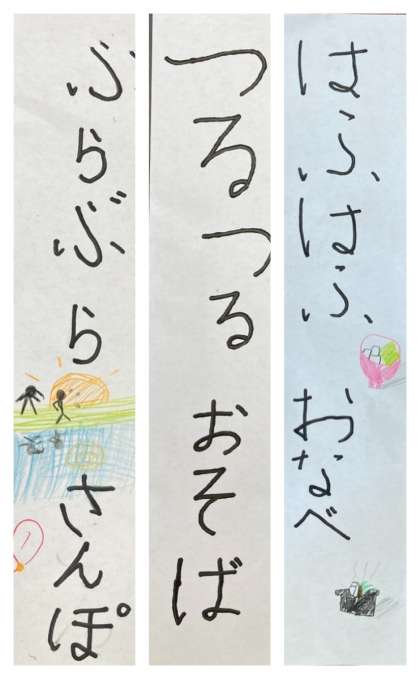 はふはふ おなべ
つるつる おそば
ぶらぶら さんぽ